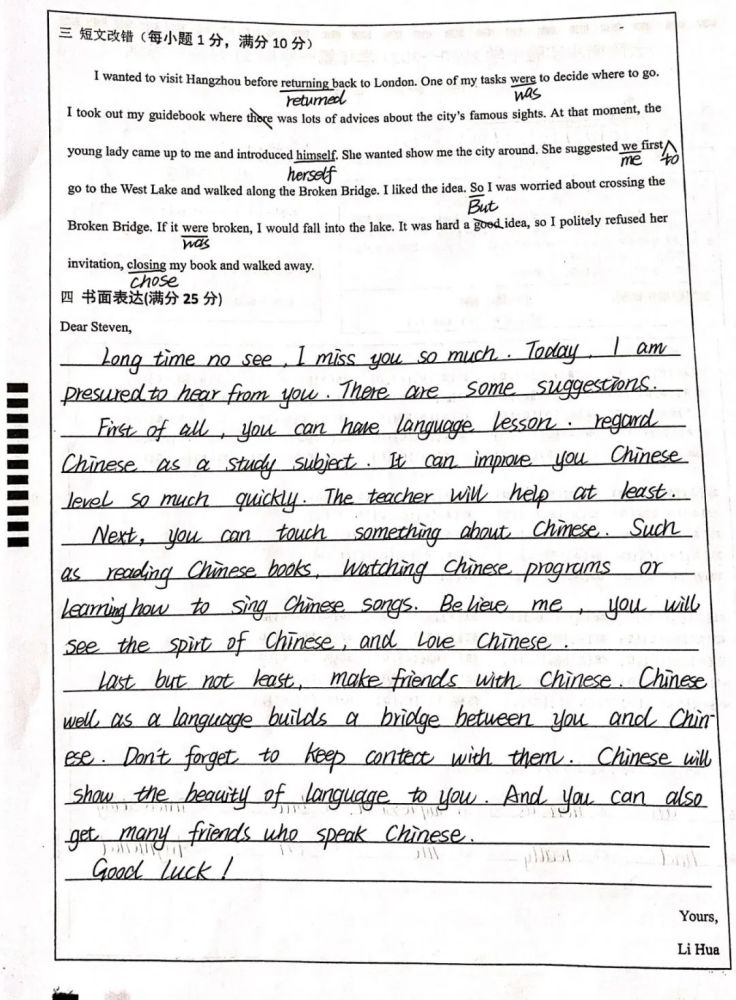 三 短文改错（每小题 1 分，满分 10 分）
I wanted to visit Hangzhou before returning back to London. One of my tasks were to decide where to go.
returned was
I took out my guidebook where there was lots of advices about the city's famous sights. At that moment, the
young lady came up to me and introduced himself. She wanted show me the city around. She suggested we first
herself me to
go to the West Lake and walked along the Broken Bridge. I liked the idea. So I was worried about crossing the
But
Broken Bridge. If it were broken, I would fall into the lake. It was hard a good idea, so I politely refused her
was
invitation, closing my book and walked away.
chose
四 书面表达(满分 25 分)
Dear Steven,
Long time no see, I miss you so much. Today, I am
presured to hear from you. There are some suggestions.
First of all, you can have language lesson. regard
Chinese as a study subject. It can improve you Chinese
level so much quickly. The teacher will help at least.
Next, you can touch something about Chinese. Such
as reading Chinese books, Watching Chinese programs or
learning how to sing Chinese songs. Believe me, you will
see the spirt of Chinese, and love Chinese.
Last but not least, make friends with Chinese. Chinese
well as a language builds a bridge between you and Chin-
ese. Don't forget to keep contect with them. Chinese will
show the beauity of language to you. And you can also
get many friends who speak Chinese.
Good luck!
Yours,
Li Hua